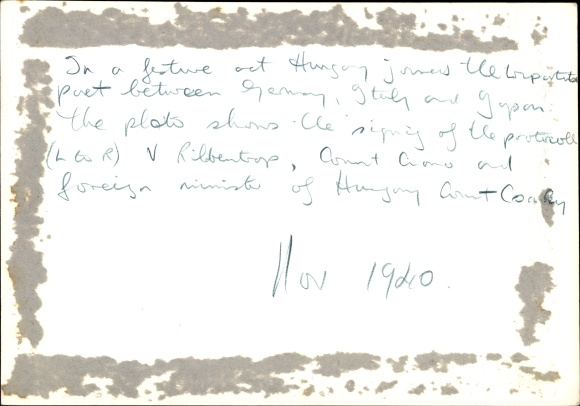 In a festive act Hungary joined the tripartite
pact between Germany, Italy and Japan.
The photo shows the signing of the protocoll
(L to R) V Ribbentrop, Count Ciano and
foreign minister of Hungary Count Csaky
Nov 1940.